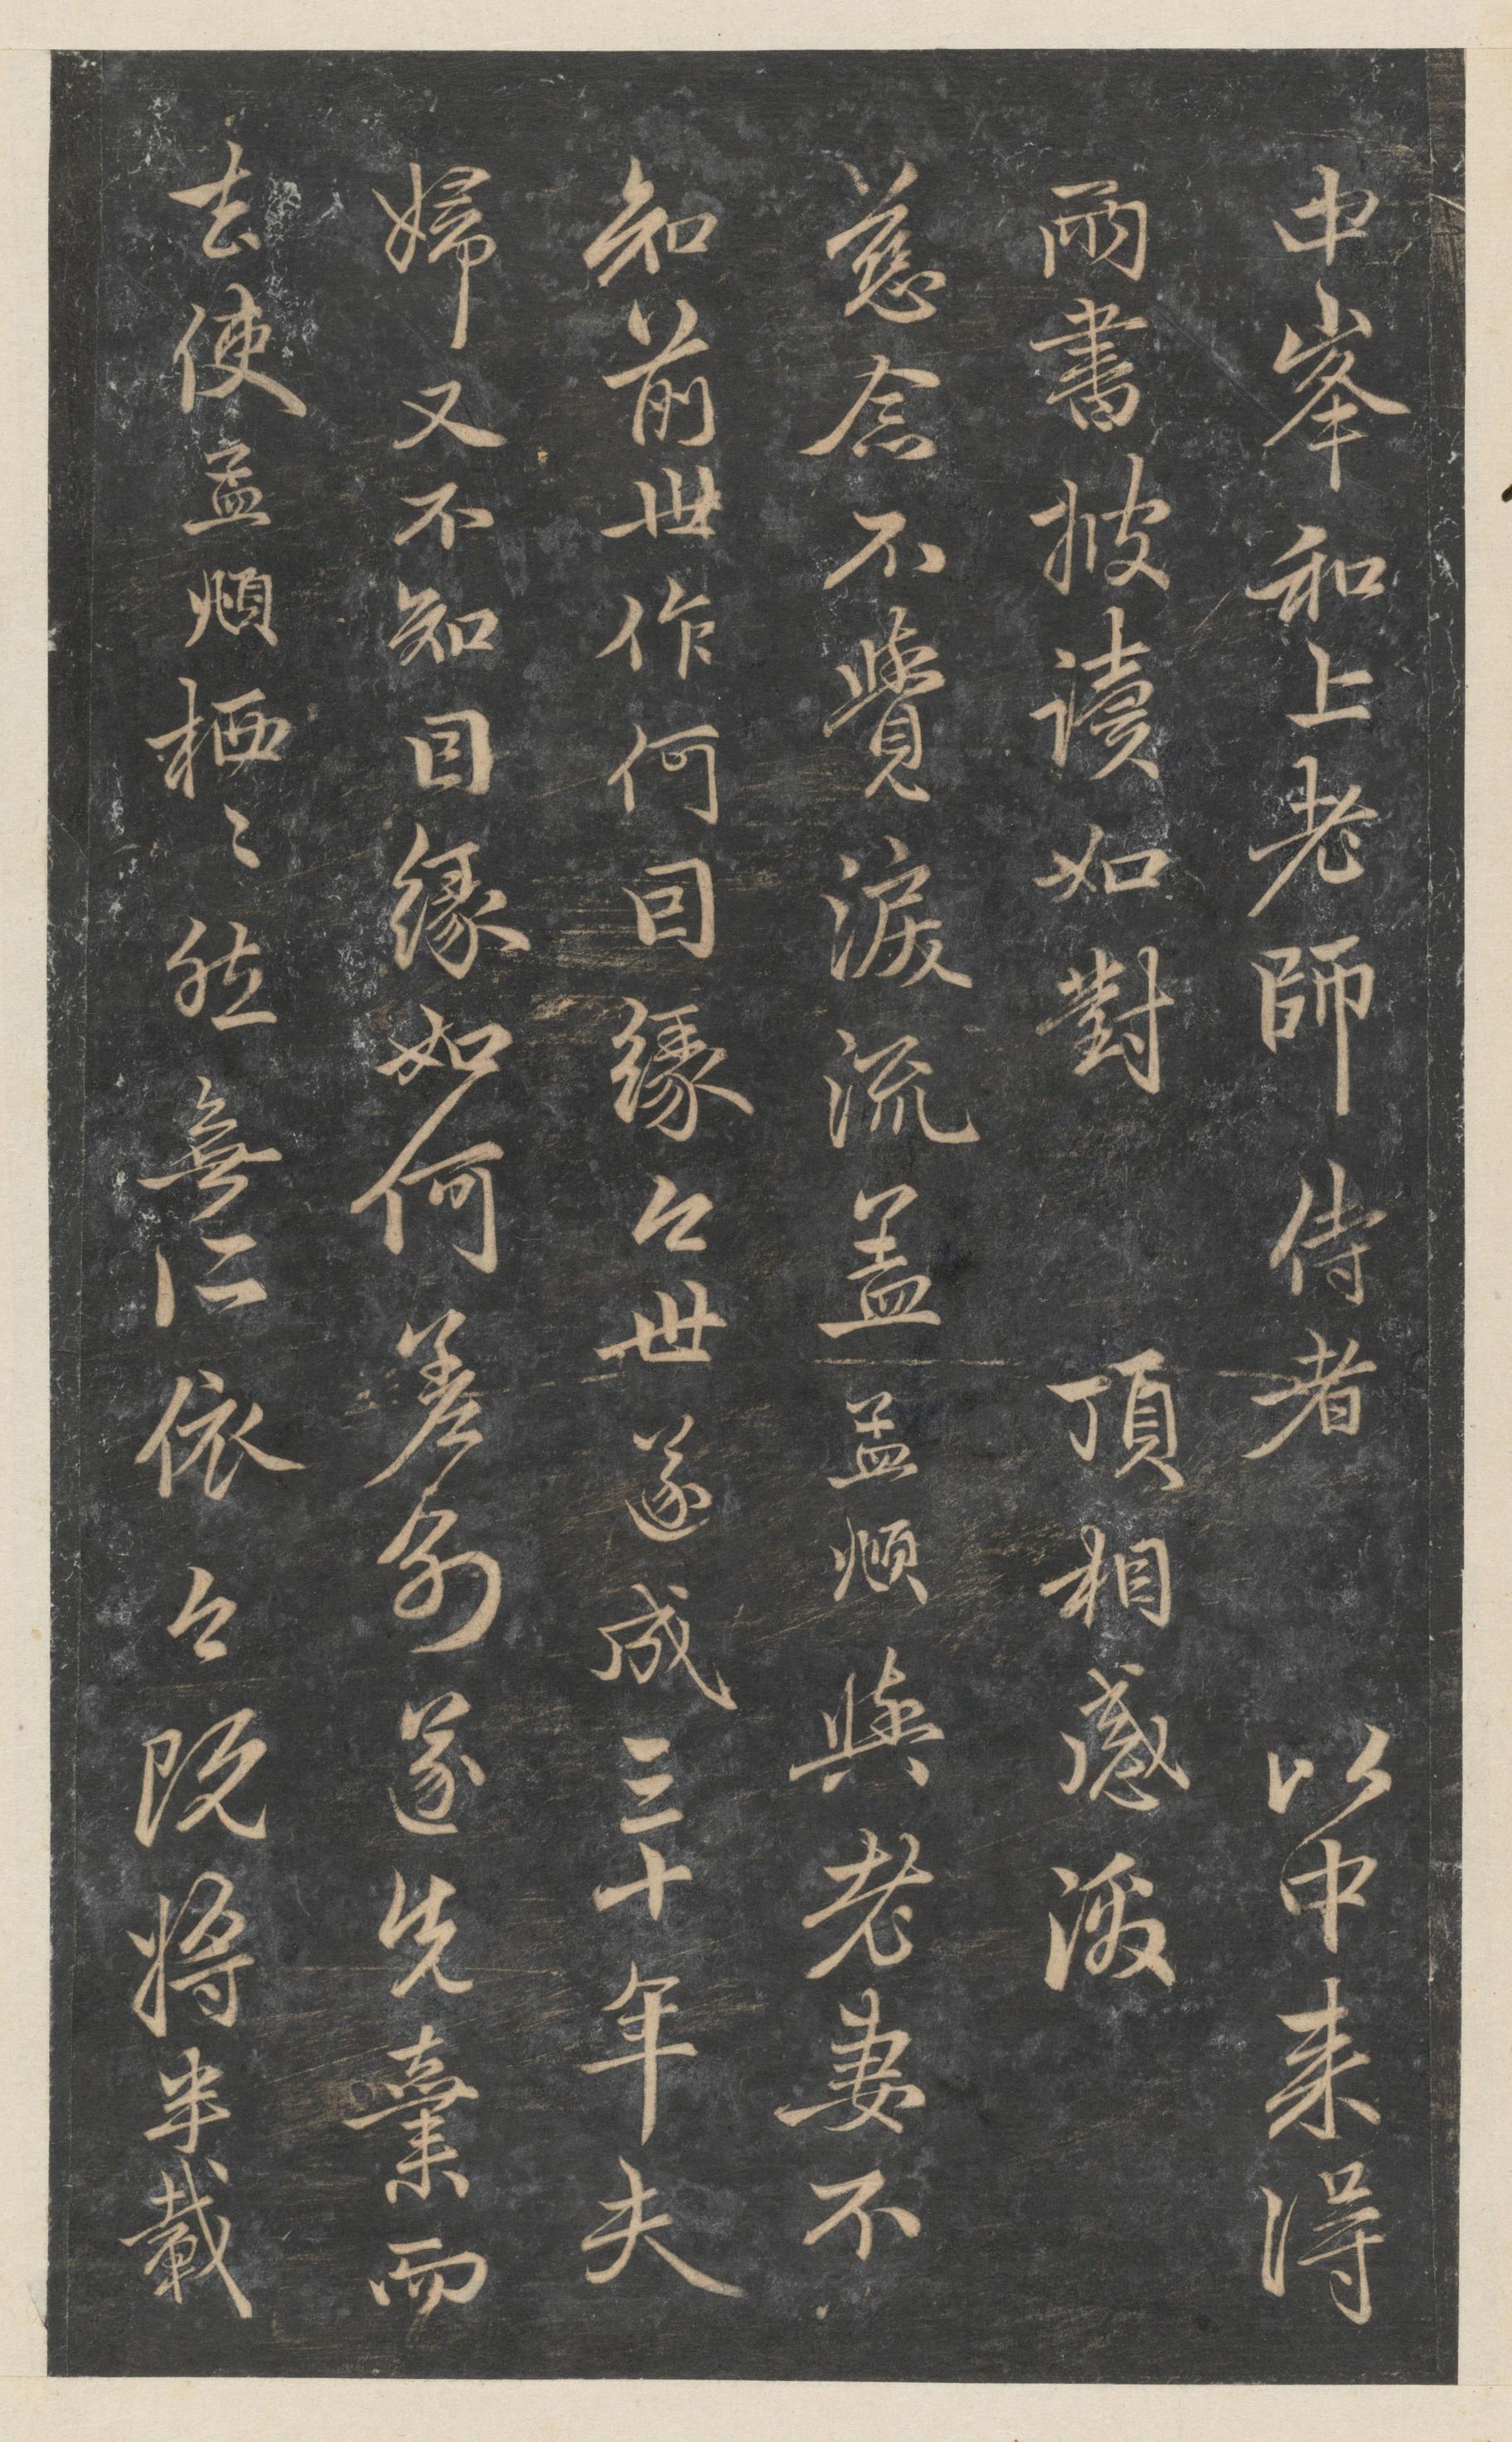 中峯和上老師侍者 以中来得
兩書披讀如對 頂相感激
慈念不覺淚流盖孟頫與老妻不
知前世作何因緣今世遂成三十年夫
婦又不知因緣如何差別遂先棄而
去使孟頫栖々然無所依今既將半載